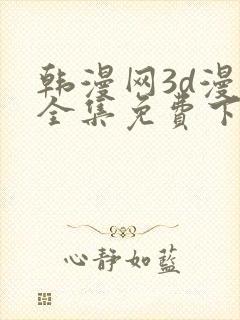 韩漫网3d漫
全集免費下
心靜如藍